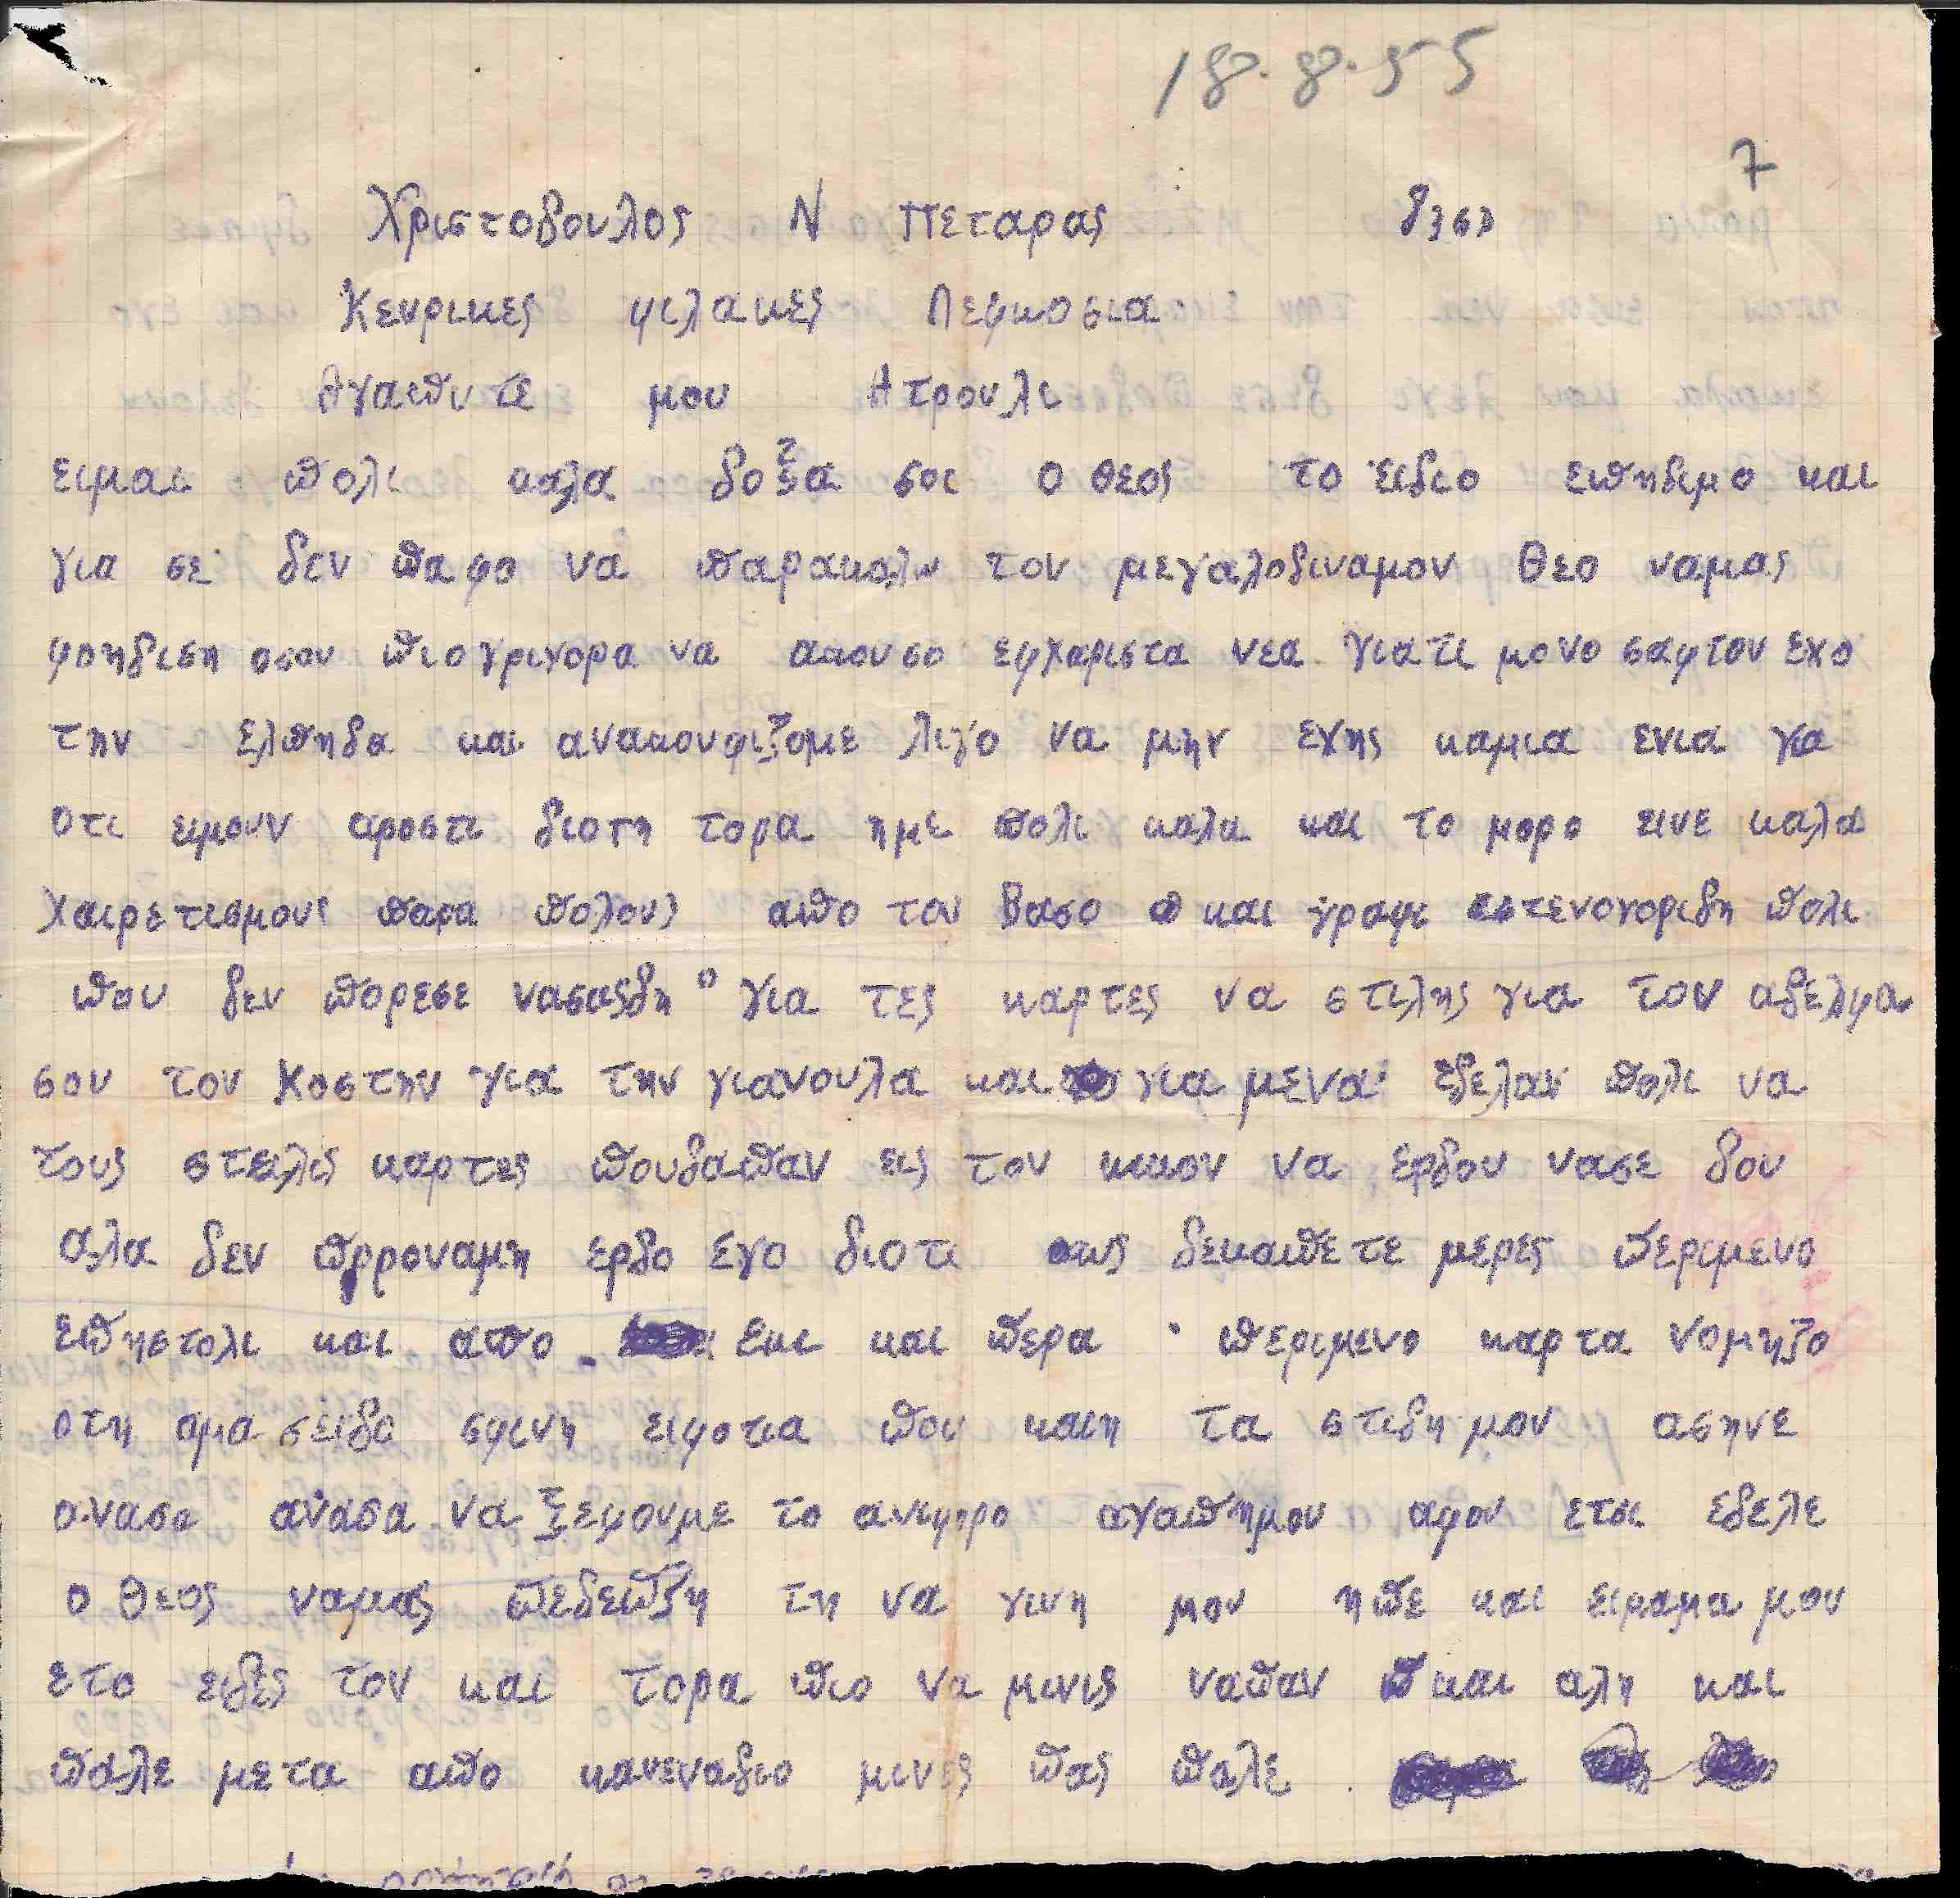 18.8.55
7
Χριστοδουλος Ν Πεταρας
Κενρικες φιλακες Λεφκοσια
Αγαπιτε μου Ατρουλι
ειμαι πολι καλα δοξα σοι ο θεος το ειδιο επηδιμο και
για σε δεν παφο να παρακαλω τον μεγαλοδιναμον Θεο ναμας
φοηδιση οσον πιο γριγορα να ακουσο εφχαριστα νεα γιατι μονο σαφτον εχο
την ελπηδα και ανακουφιζομε λιγο να μην εχης καμια ενια για
οτι ειμουν αροστι διοτη τορα ημε πολι καλα και το μορο εινε καλα
Χαιρετισμους παρα πολους απο τον Βασο και γραφι στενοχοριδη πολι
που δεν πορεσε νασασδη για τες καρτες να στιλης για τον αδελφο
σου τον Κοστην για την γιανουλα και για μενα εδελαν πολι να
τους στειλις καρτες πουδαπαν εις τον κικον να ερδουν νασε δουν
αλα δεν προροναμη ερδο εγο διοτι ος δεκαπετε μερες περιμενο
επηστολι και απο εκι και περα περιμενο καρτα νομηζο
οτη αμα σειδο σφινη ειφοτια που καιη τα στιδη μου ασηνε
ανασα ανασα να ξεφουμε το ανιφορο αγαπημου αφου ετσι εδελε
ο θεος ναμας πεδεπξη τη να γινη μου ηπε και ειμαμα μου
ετο ειδες τον και τορα πιο να μινις ναπαν και αλη και
παλε μετα απο κανεναδιο μινες πας παλε